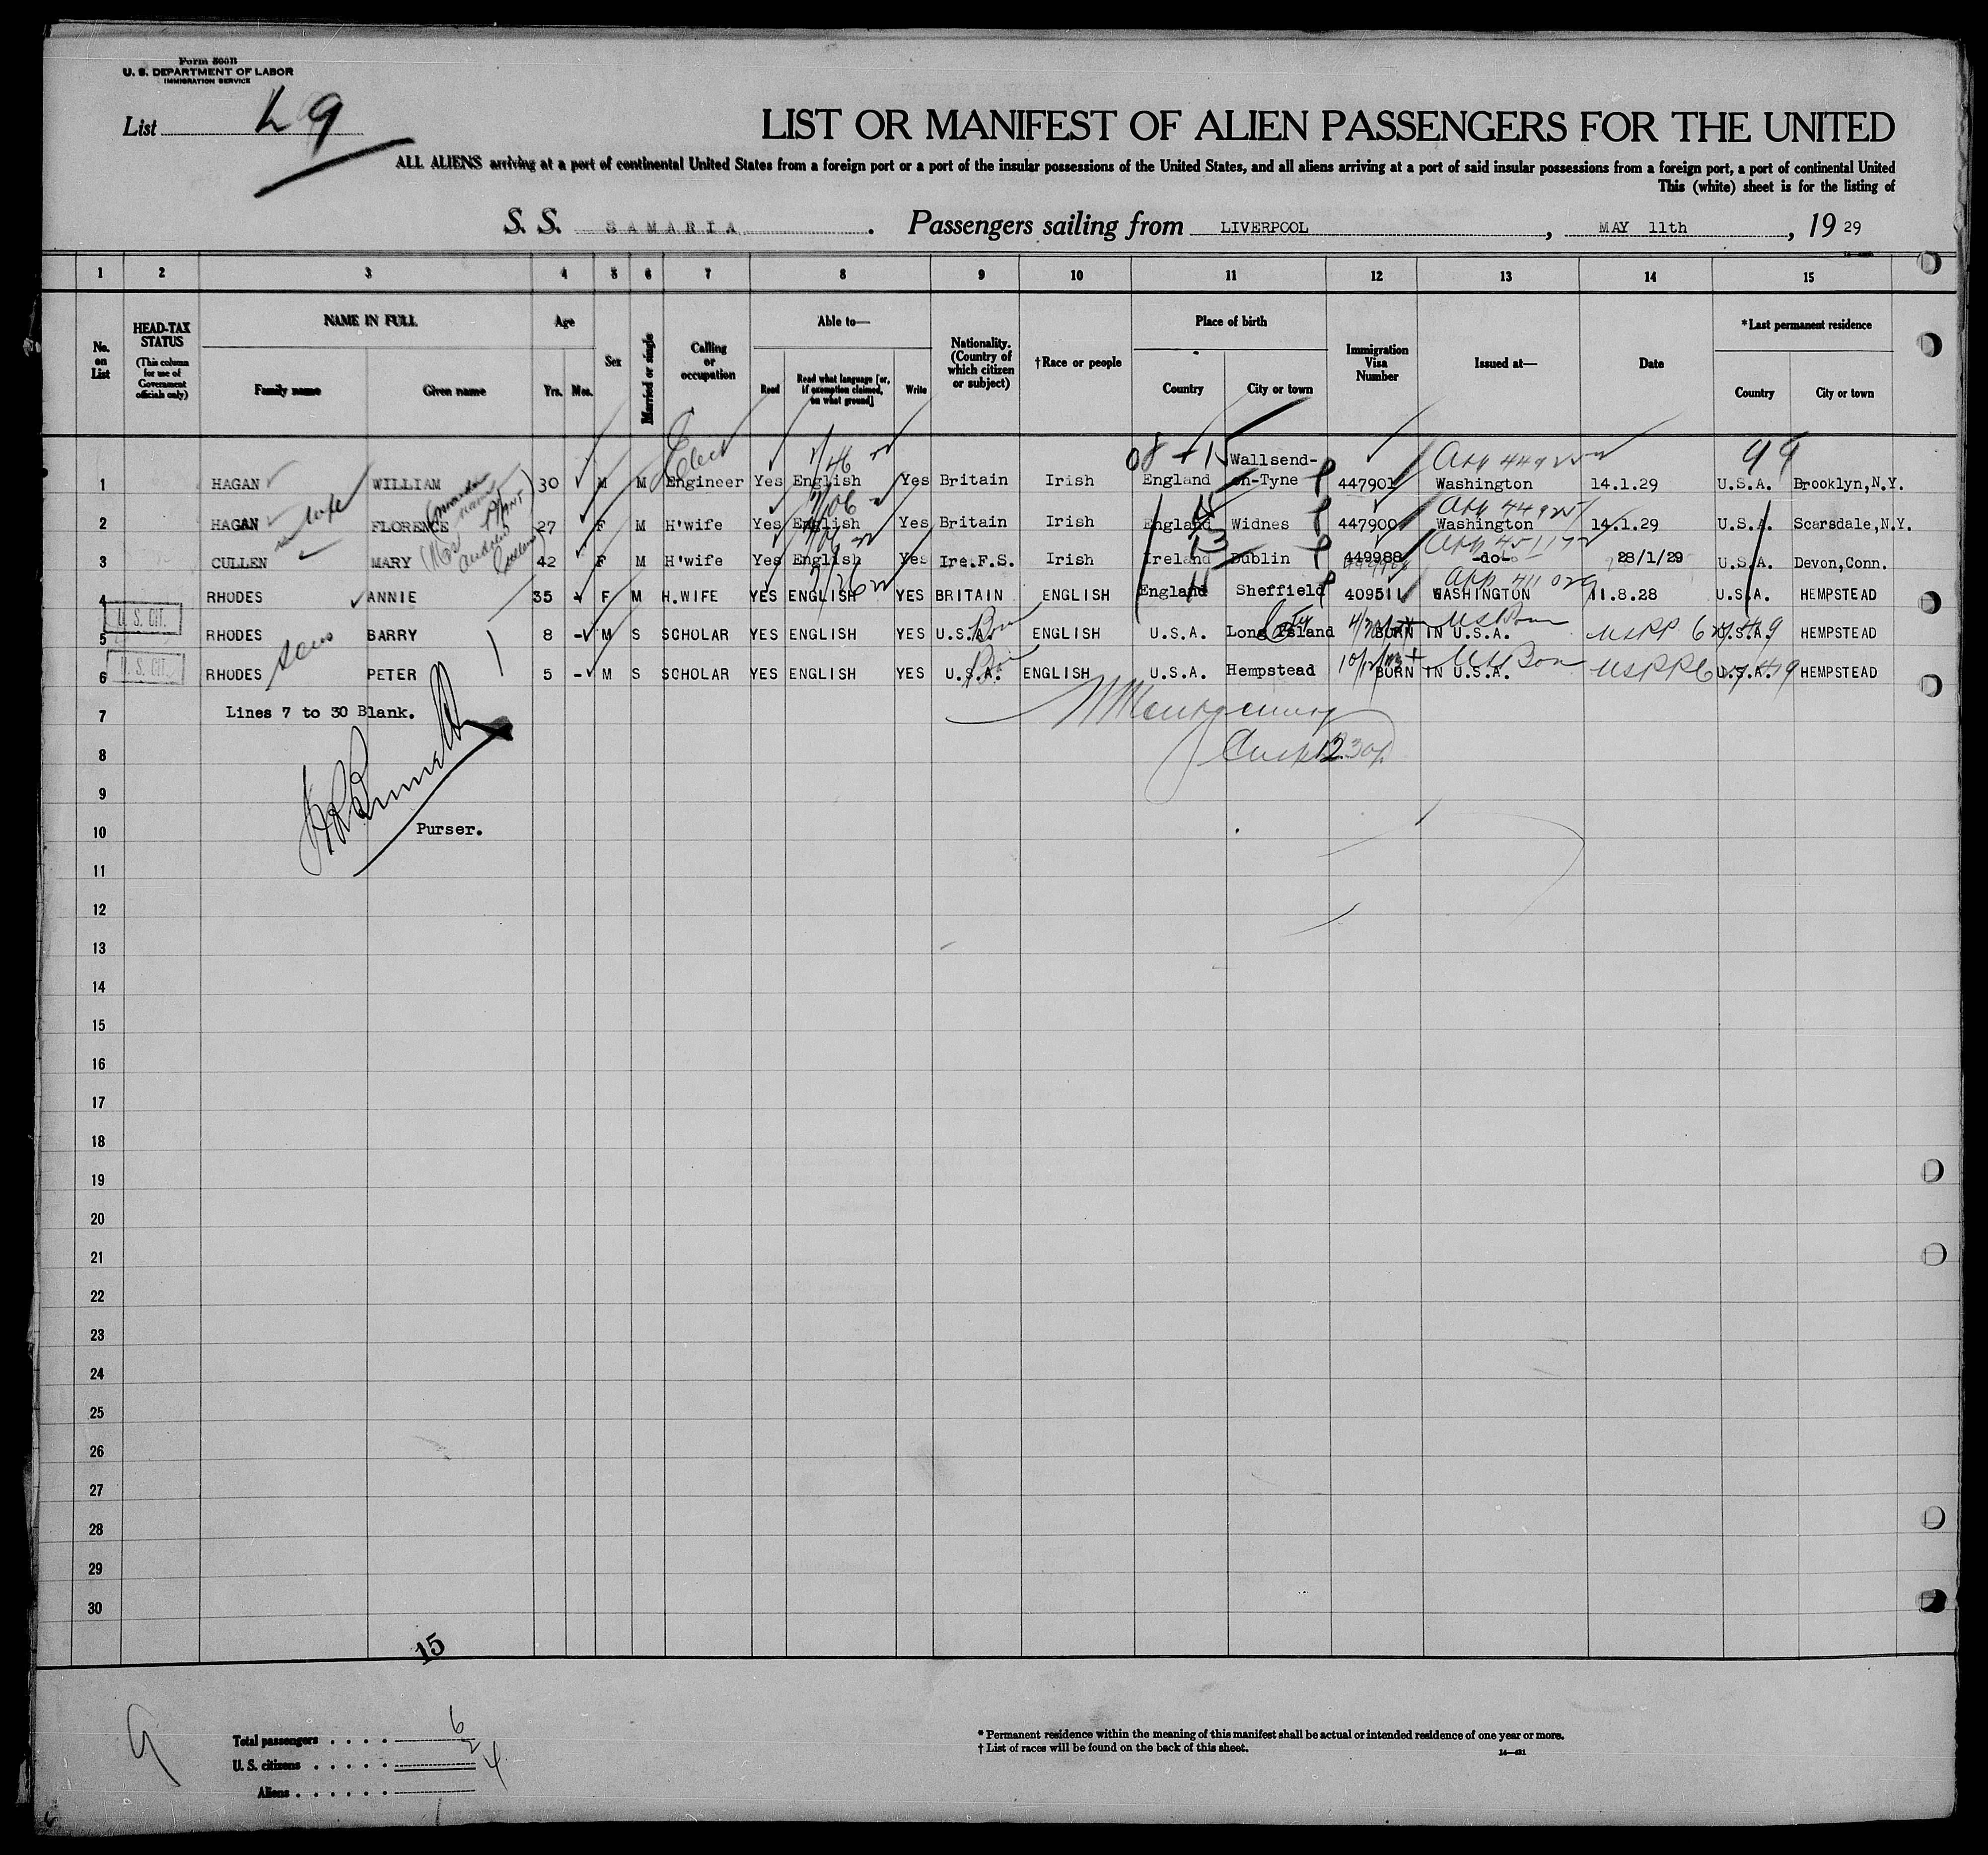 Form 500B
U. S. DEPARTMENT OF LABOR
IMMIGRATION SERVICE
List 9
LIST OR MANIFEST OF ALIEN PASSENGERS FOR THE UNITED
ALL ALIENS arriving at a port of continental United States from a foreign port or a port of the insular possessions of the United States, and all aliens arriving at a port of said insular possessions from a foreign port, a port of continental United
This (white) sheet is for the listing of
S. S. SAMARIA. Passengers sailing from LIVERPOOL, MAY 11th, 19 29
1 2 3 4 5 6 7 8 9 10 11 12 13 14 15
No. on List
HEAD-TAX STATUS (This column for use of Government officials only)
NAME IN FULL
Family name Given name
Age
Yrs. Mos.
Sex
Married or single
Calling or occupation
Able to—
Read Read what language [or, if exemption claimed, on what ground] Write
Nationality. (Country of which citizen or subject)
†Race or people
Place of birth
Country City or town
Immigration Visa Number
Issued at—
Date
*Last permanent residence
Country City or town
1 HAGAN WILLIAM 30 M M Elect Engineer Yes English Yes Britain Irish England Wallsend-on-Tyne 447901 Washington 14.1.29 U.S.A. Brooklyn,N.Y.
2 HAGAN wife FLORENCE 27 F M H'wife Yes English Yes Britain Irish England Widnes 447900 Washington 14.1.29 U.S.A. Scarsdale,N.Y.
3 CULLEN MARY 42 F M H'wife Yes English Yes Ire.F.S. Irish Ireland Dublin 449988 -do- 28/1/29 U.S.A. Devon,Conn.
4 RHODES ANNIE 35 F M H.WIFE YES ENGLISH YES BRITAIN ENGLISH England Sheffield 409511 WASHINGTON 11.8.28 U.S.A. HEMPSTEAD
U. S. CIT.
5 RHODES BARRY 8 - M S SCHOLAR YES ENGLISH YES U.S.A. ENGLISH U.S.A. Long Island City BORN IN U.S.A. U.S.A. HEMPSTEAD
U. S. CIT.
6 RHODES sons PETER 5 - M S SCHOLAR YES ENGLISH YES U.S.A. ENGLISH U.S.A. Hempstead BORN IN U.S.A. U.S.A. HEMPSTEAD
7 Lines 7 to 30 Blank.
8
9
10 Purser.
11
12
13
14
15
16
17
18
19
20
21
22
23
24
25
26
27
28
29
30
15
9
Total passengers . . . . 6
U. S. citizens . . . . . 2
Aliens . . . . . . 4
* Permanent residence within the meaning of this manifest shall be actual or intended residence of one year or more.
† List of races will be found on the back of this sheet.